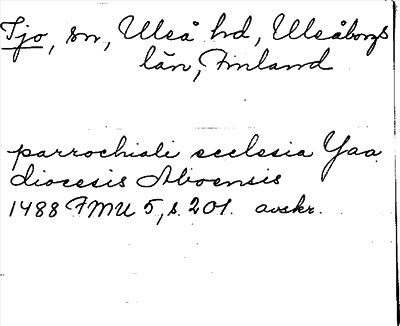 Ijo, sn, Uleå hd, Uleåborgs
län, Finland
parrochiali ecclesia Yaa
diocesis Aboensis
1488 FMU 5, s. 201. avskr.